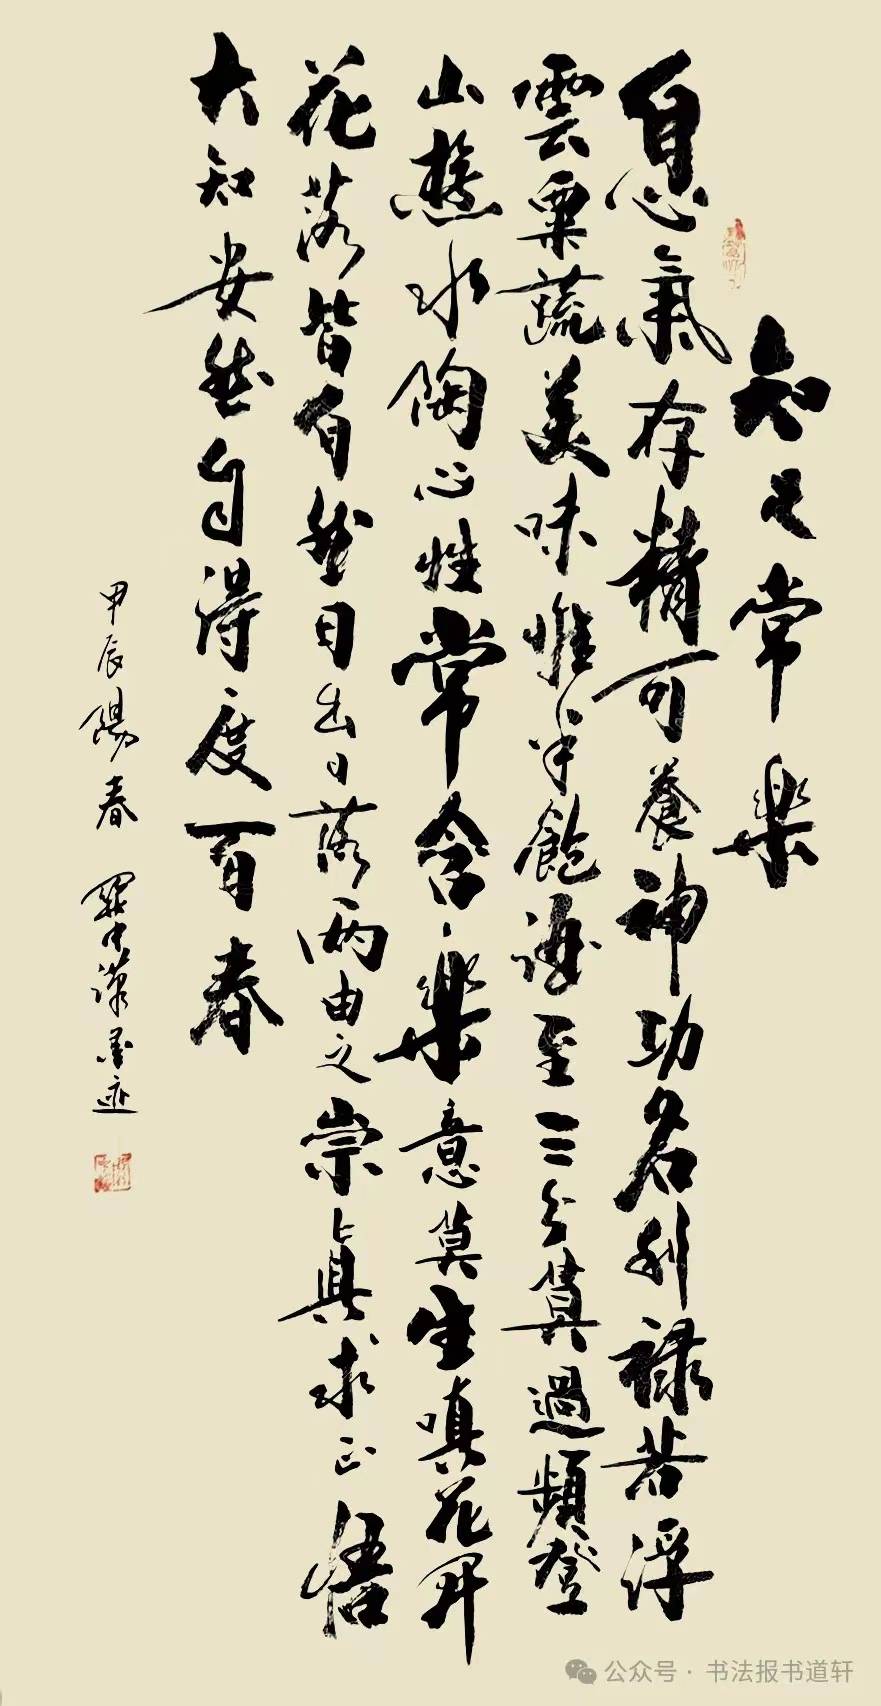 知足常樂
息氣存精可養神功名利祿若浮
雲粟蔬美味惟半飽酒至三分莫過頻登
山水陶心性常含樂意莫生嗔花開
花落皆自然日出日落兩由之崇真求正悟
大知安然自得度百春
甲辰陽春 羅中漢墨迹
公众号·书法报书道轩